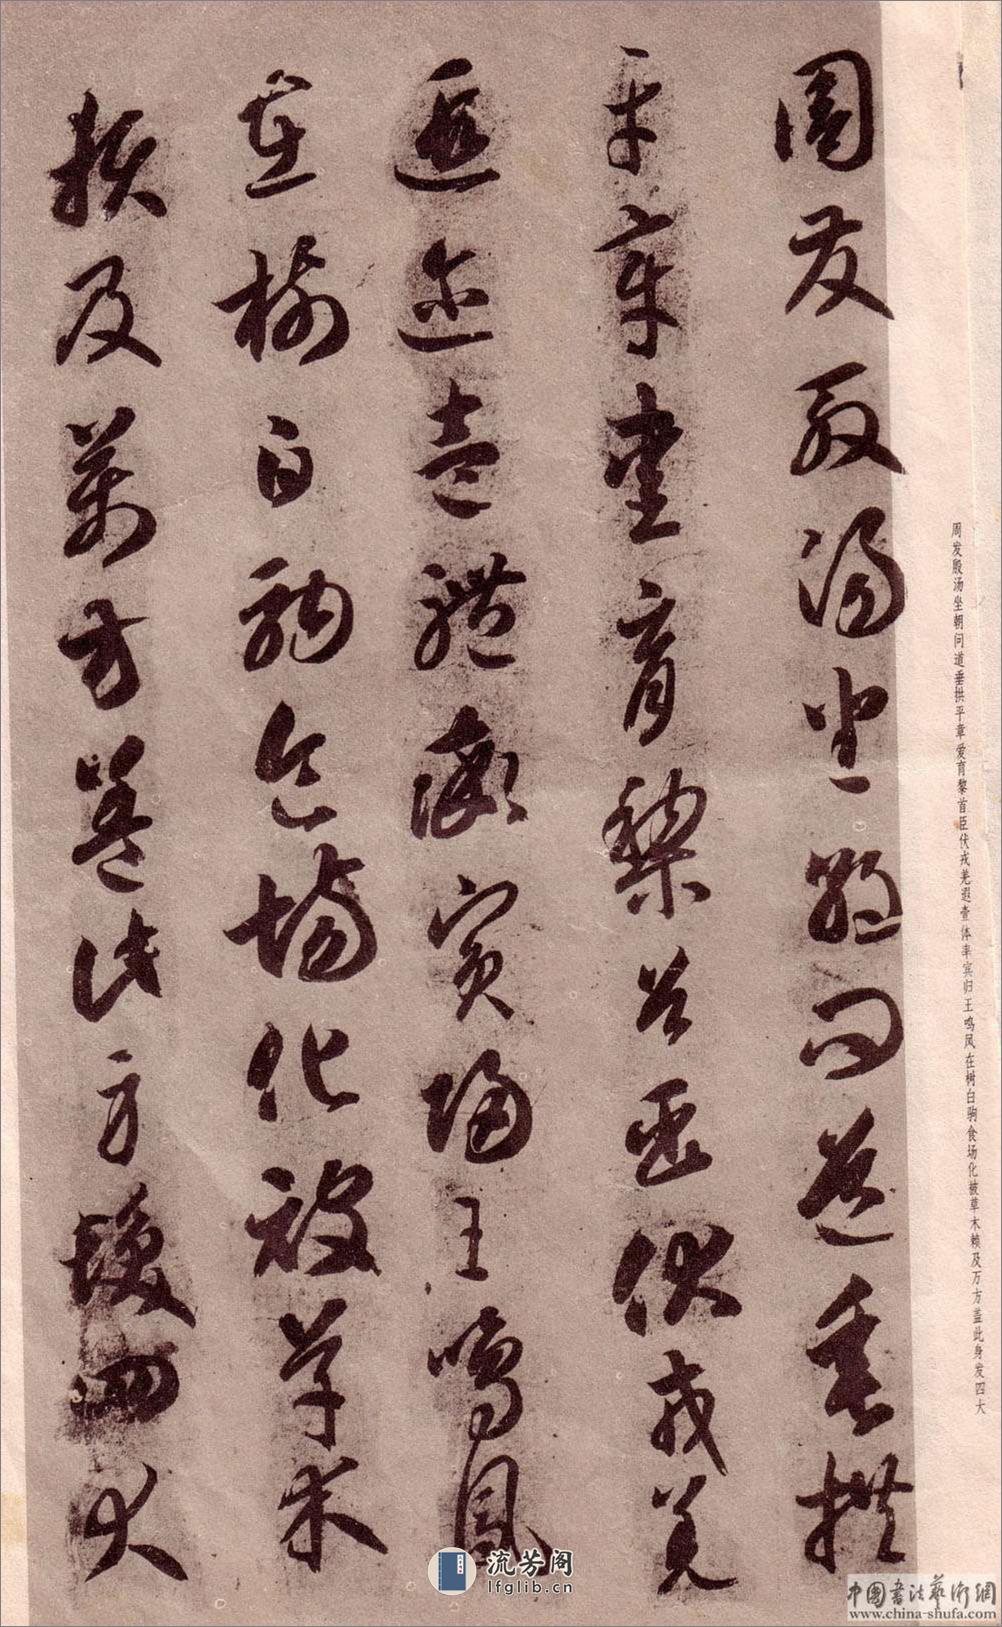 周发殷汤坐朝问道垂拱平章爱育黎首臣伏戎羌遐壹体率宾归王鸣凤在树白驹食场化被草木赖及万方盖此身发四大
周發殷湯坐朝問道垂拱
平章愛育黎首臣伏戎羌
遐迩壹體率賓歸王鳴鳳
在樹白駒食場化被草木
賴及萬方蓋此身髮四大
流芳阁
lfglib.cn
中国书法艺术网
www.china-shufa.com